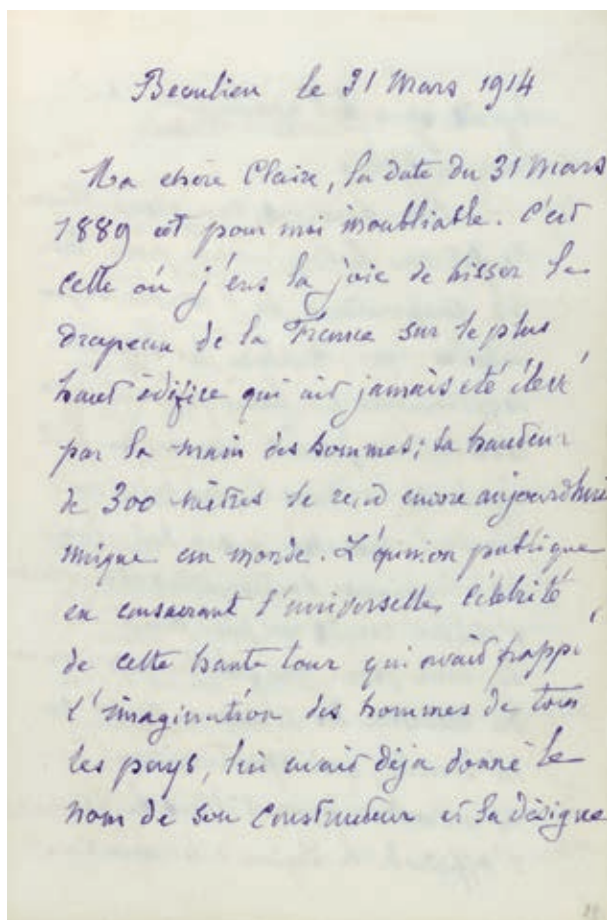 Beaulieu le 31 Mars 1914
Ma chère Claire, la date du 31 Mars
1889 est pour moi inoubliable. C'est
celle où j'eus la joie de hisser le
drapeau de la France sur le plus
haut édifice qui ait jamais été élevé
par la main des hommes; sa hauteur
de 300 mètres le rend encore aujourd'hui
unique au monde. L'opinion publique
en consacrant l'universelle célébrité
de cette haute tour qui avait frappé
l'imagination des hommes de tous
les pays, lui avait déja donné le
nom de son constructeur et la désigne